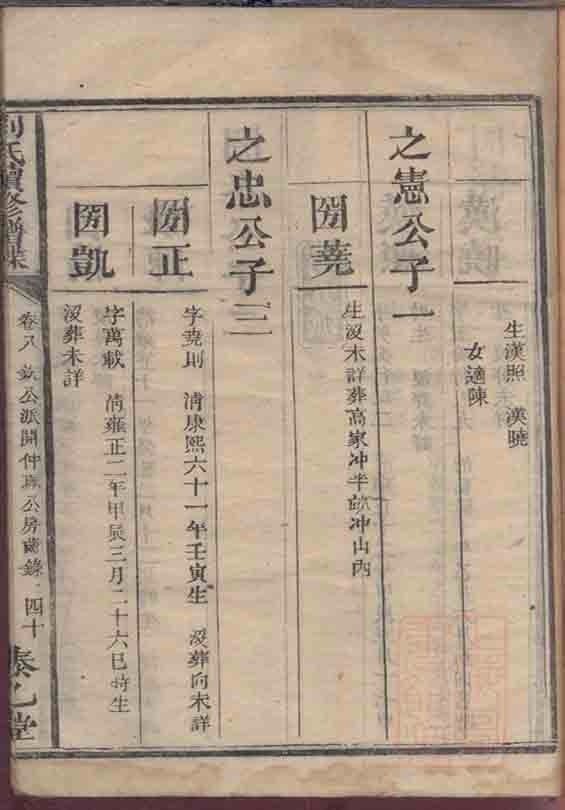 生漢照 漢曉
女適陳
之憲公子一
圀蕘
生沒未詳葬高家冲半 冲山內
之忠公子三
圀正
字堯則 清康熙六十一年壬寅生 沒葬向未詳
圀凱
字萬載 清雍正二年甲辰三月二十六巳時生
沒葬未詳
氏續修譜
卷八 欽公派開仲 公房齒錄 四十
乙堂